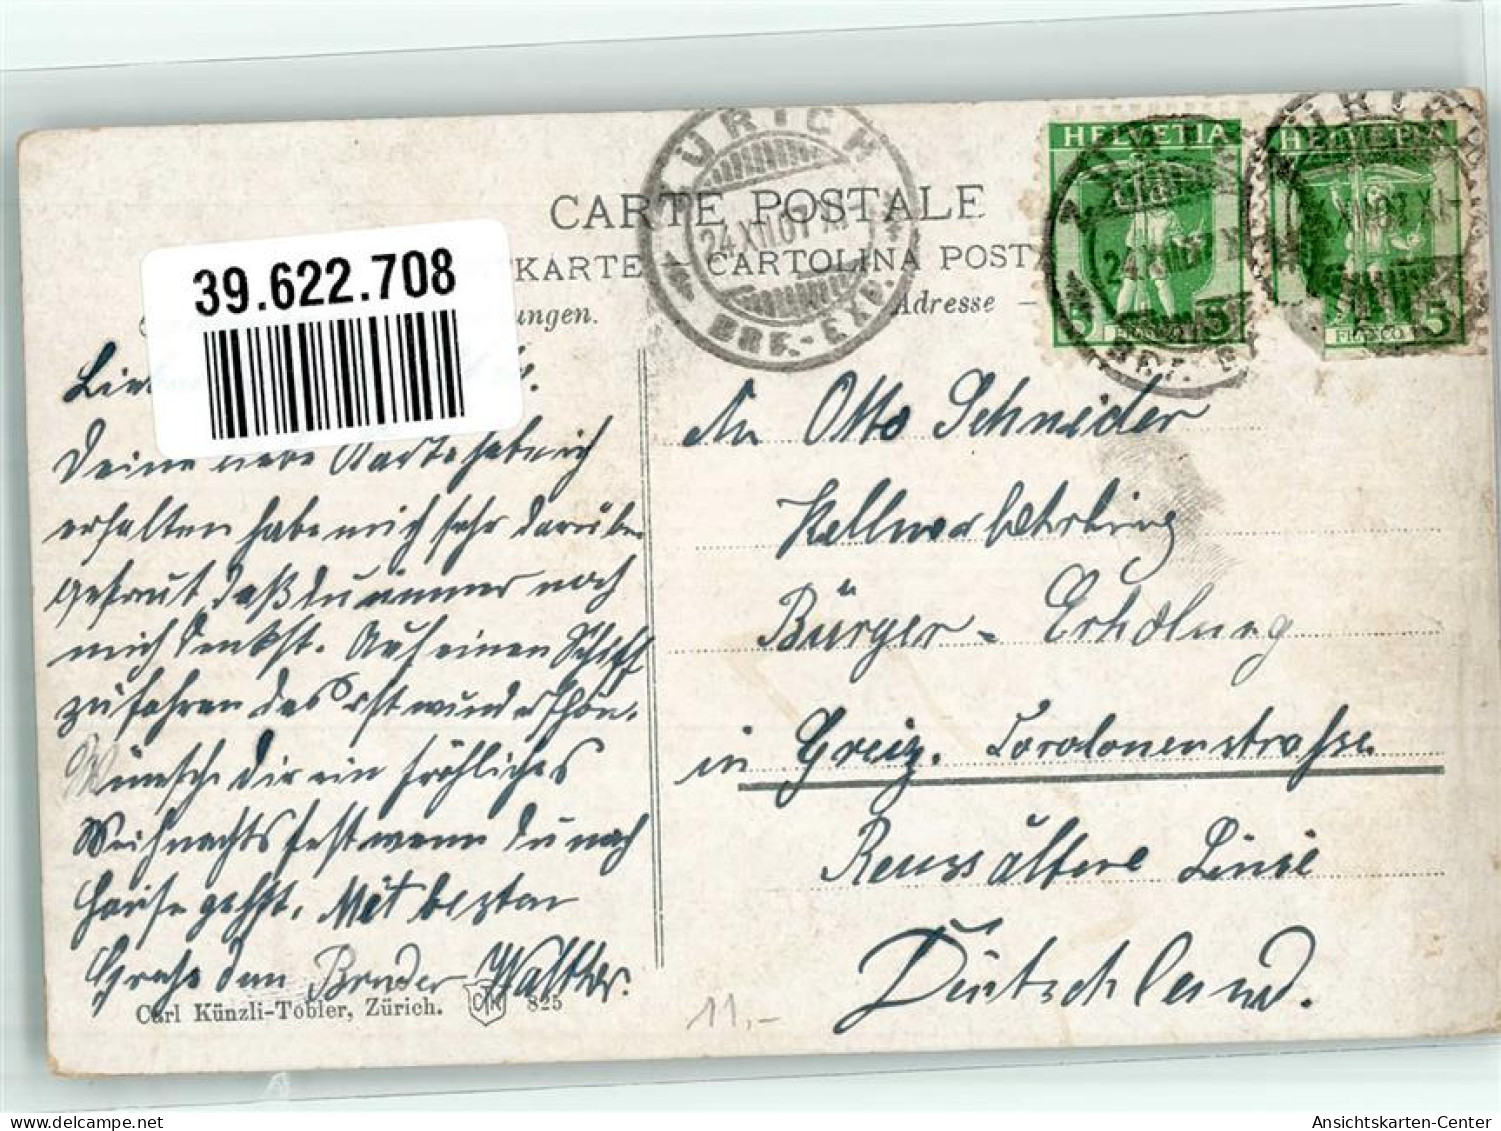 39.622.708
ZÜRICH
24.XII.07 XI-
BRF.-EXP.
HELVETIA
HELVETIA
5 FRANCO 5
FRANCO 5
CARTE POSTALE
KARTE — CARTOLINA POST
ungen.
Adresse —
Deine liebe Karte habe ich
erhalten habe mich sehr darüber
gefreut, daß du immer noch
mich denkst. Auf einen Schiff
zu fahren das ist wunderschön.
Wünsche dir ein fröhliches
Weihnachtsfest wenn du nach
Hause gehst. Mit besten
Gruße dein Bruder Walther.
Carl Künzli-Tobler, Zürich. 825
An Otto Schneider
Kellnerlehrling
Bürger-Erholung
in Greiz. Carolinenstraße
Reuss ältere Linie
Deutschland.
11,-
Ansichtskarten-Center